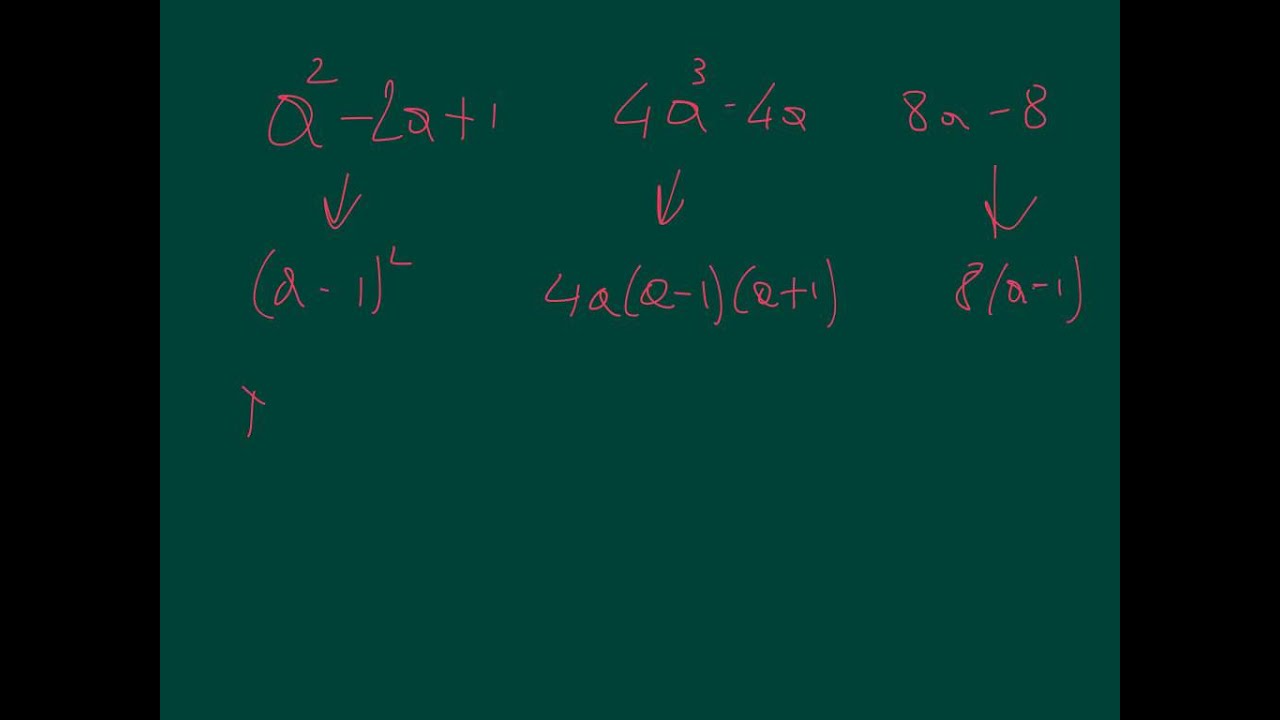 a² - 2a + 1 4a³ - 4a 8a - 8
↓ ↓ ↓
(a - 1)² 4a(a - 1)(a + 1) 8(a - 1)